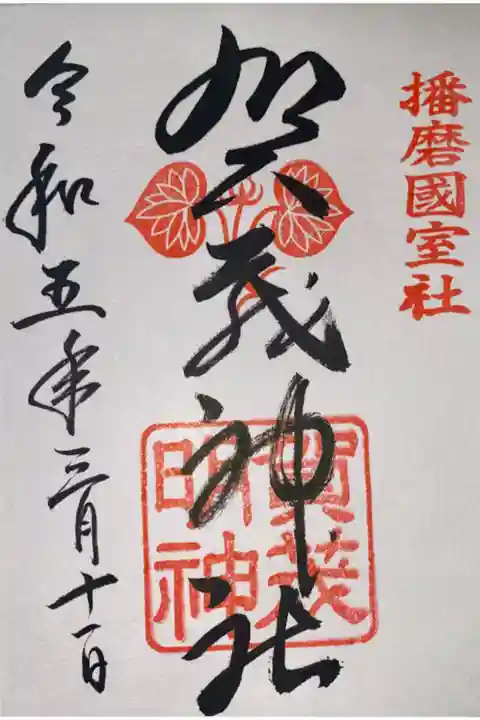 播磨國室社
賀茂神社
賀茂
明神
令和五年三月十一日